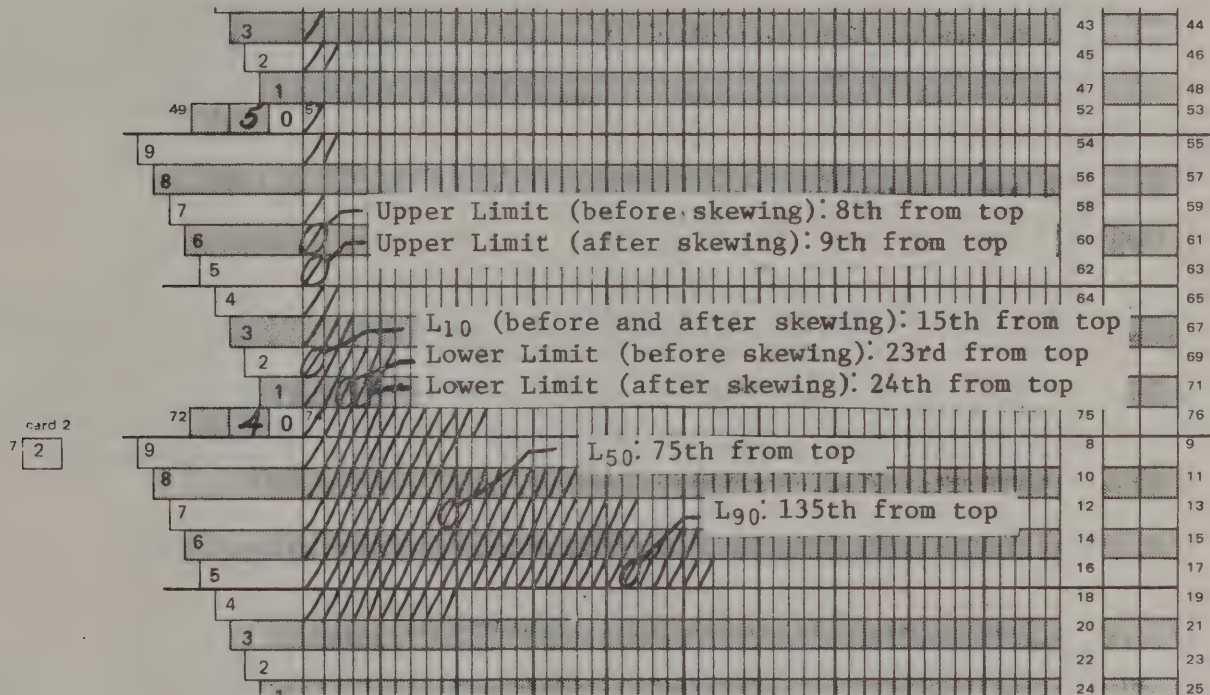 3 43 44
2 45 46
1 47 48
49 5 0 5 52 53
9 54 55
8 56 57
7 Upper Limit (before skewing): 8th from top 58 59
6 Upper Limit (after skewing): 9th from top 60 61
5 62 63
4 64 65
3 L10 (before and after skewing): 15th from top 67
2 Lower Limit (before skewing): 23rd from top 69
1 Lower Limit (after skewing): 24th from top 71
72 4 0 7 75 76
card 2
7 2
9 L50: 75th from top 8 9
8 10 11
7 L90: 135th from top 12 13
6 14 15
5 16 17
4 18 19
3 20 21
2 22 23
1 24 25